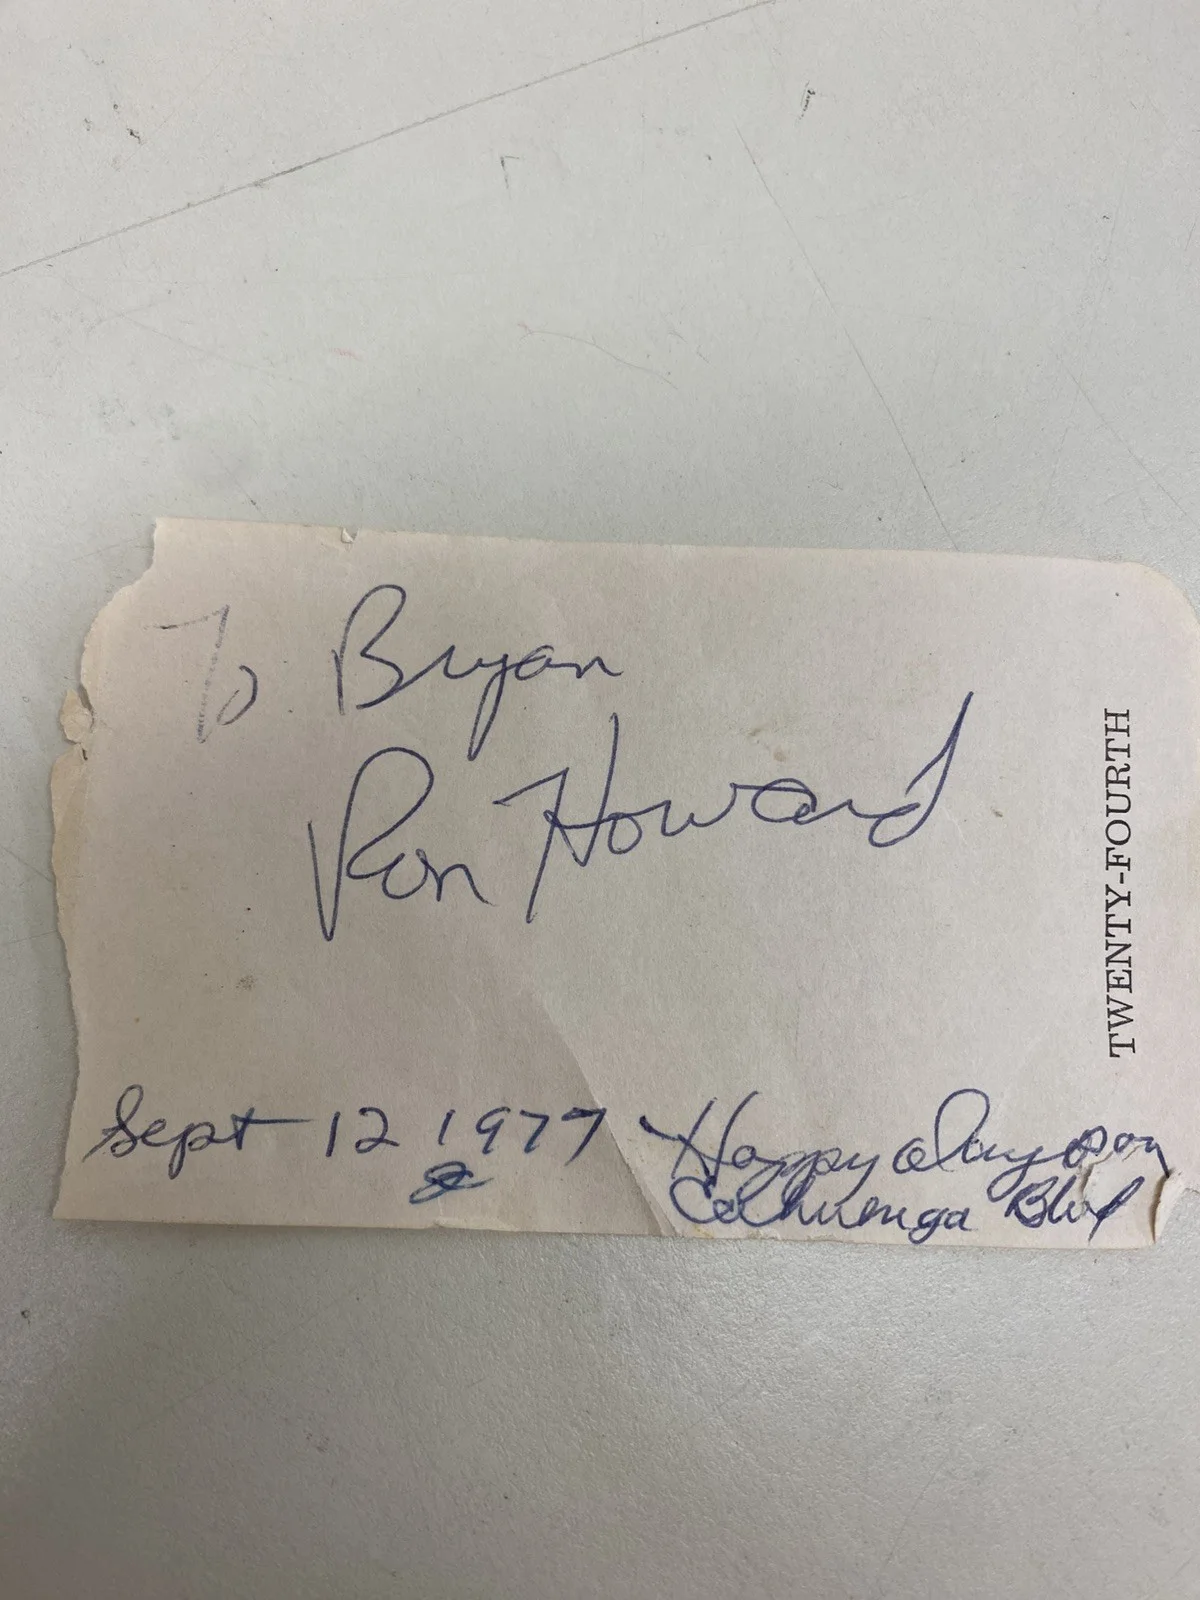 To Bryan
Ron Howard
Sept 12 1977
Happy days on
Cahuenga Blvd
TWENTY-FOURTH